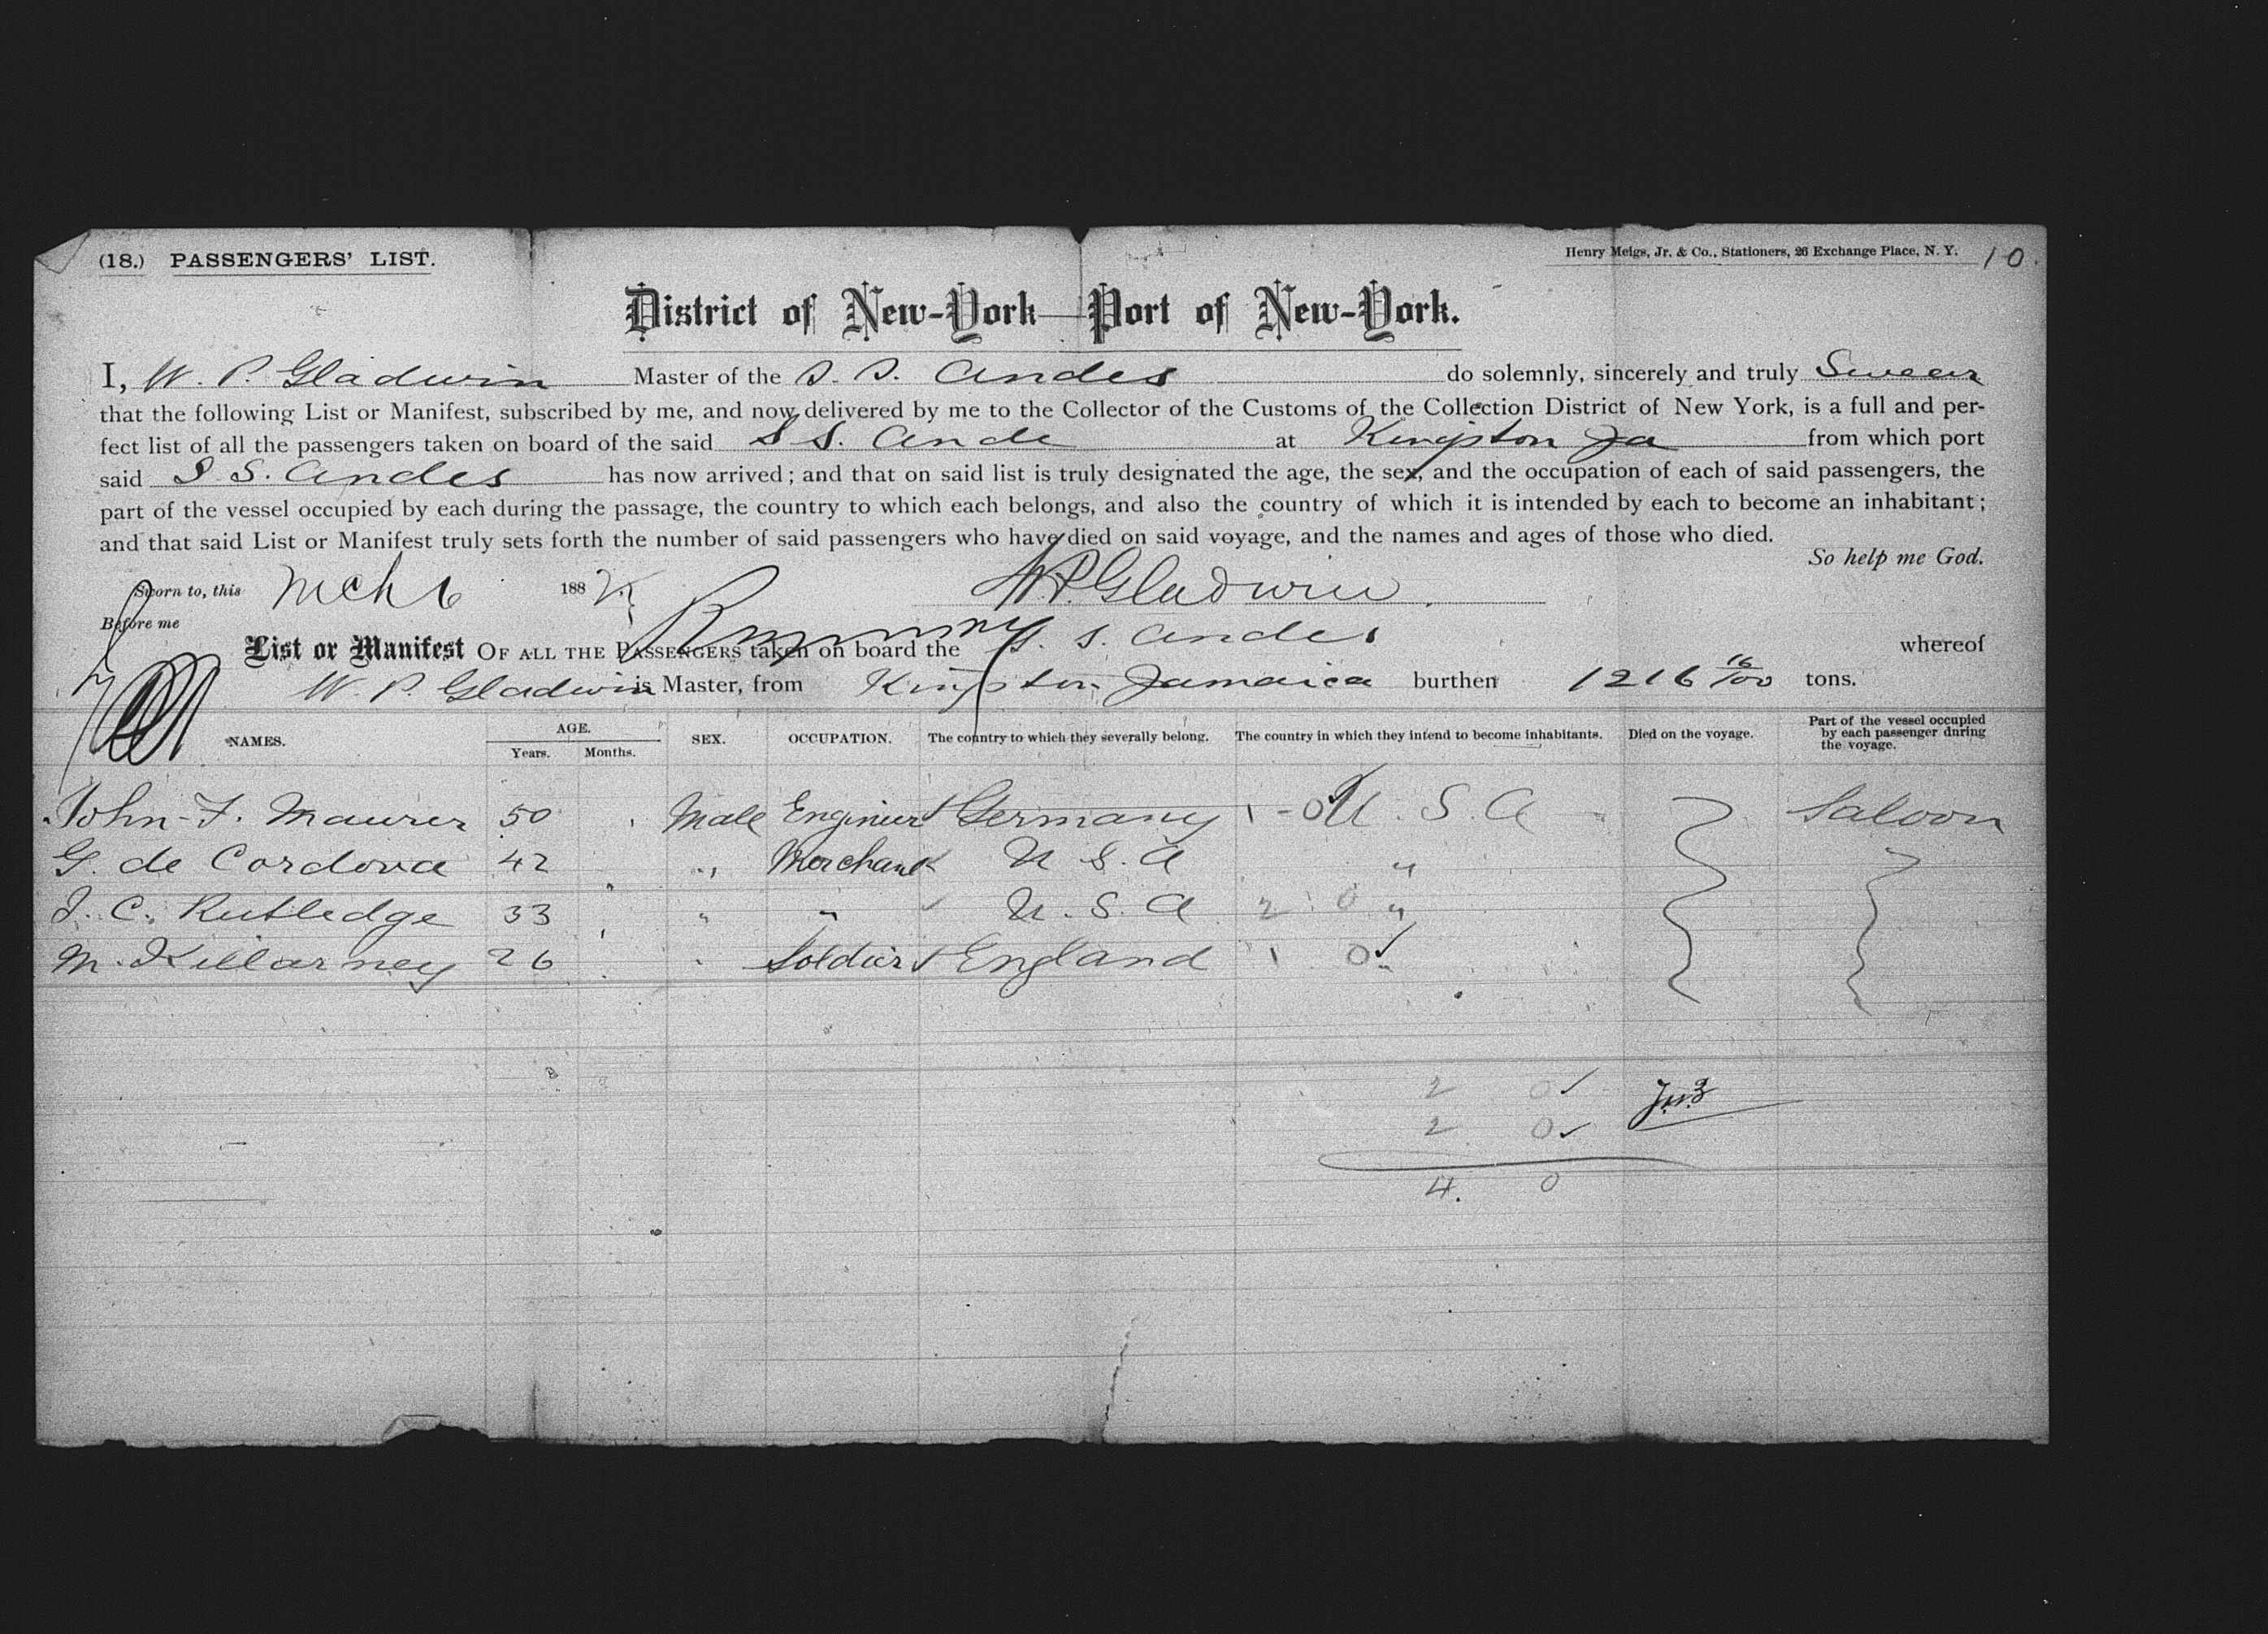 (18.) PASSENGERS' LIST.
Henry Meigs, Jr. & Co., Stationers, 26 Exchange Place, N. Y. 10.
District of New-York—Port of New-York.
I, W. P. Gladwin Master of the S. S. Andes do solemnly, sincerely and truly Swear
that the following List or Manifest, subscribed by me, and now delivered by me to the Collector of the Customs of the Collection District of New York, is a full and per-
fect list of all the passengers taken on board of the said S S. Ande at Kingston Ja from which port
said S. S. Andes has now arrived; and that on said list is truly designated the age, the sex, and the occupation of each of said passengers, the
part of the vessel occupied by each during the passage, the country to which each belongs, and also the country of which it is intended by each to become an inhabitant;
and that said List or Manifest truly sets forth the number of said passengers who have died on said voyage, and the names and ages of those who died.
So help me God.
Sworn to, this Mch 6 1882 W. P. Gladwin
Before me
List or Manifest OF ALL THE PASSENGERS taken on board the S. S. Andes whereof
W. P. Gladwin is Master, from Kingston Jamaica burthen 1216 16/100 tons.
NAMES. AGE. Years. Months. SEX. OCCUPATION. The country to which they severally belong. The country in which they intend to become inhabitants. Died on the voyage. Part of the vessel occupied by each passenger during the voyage.
John F. Maurer 50 Male Enginier Germany 1 - 0 U. S. A Saloon
G. de Cordova 42 " Merchant U S. A "
J. C. Rutledge 33 " " U. S. A 2 0 "
M. Killarney 26 " Soldier England 1 0 "
2 0
2 0
4. 0